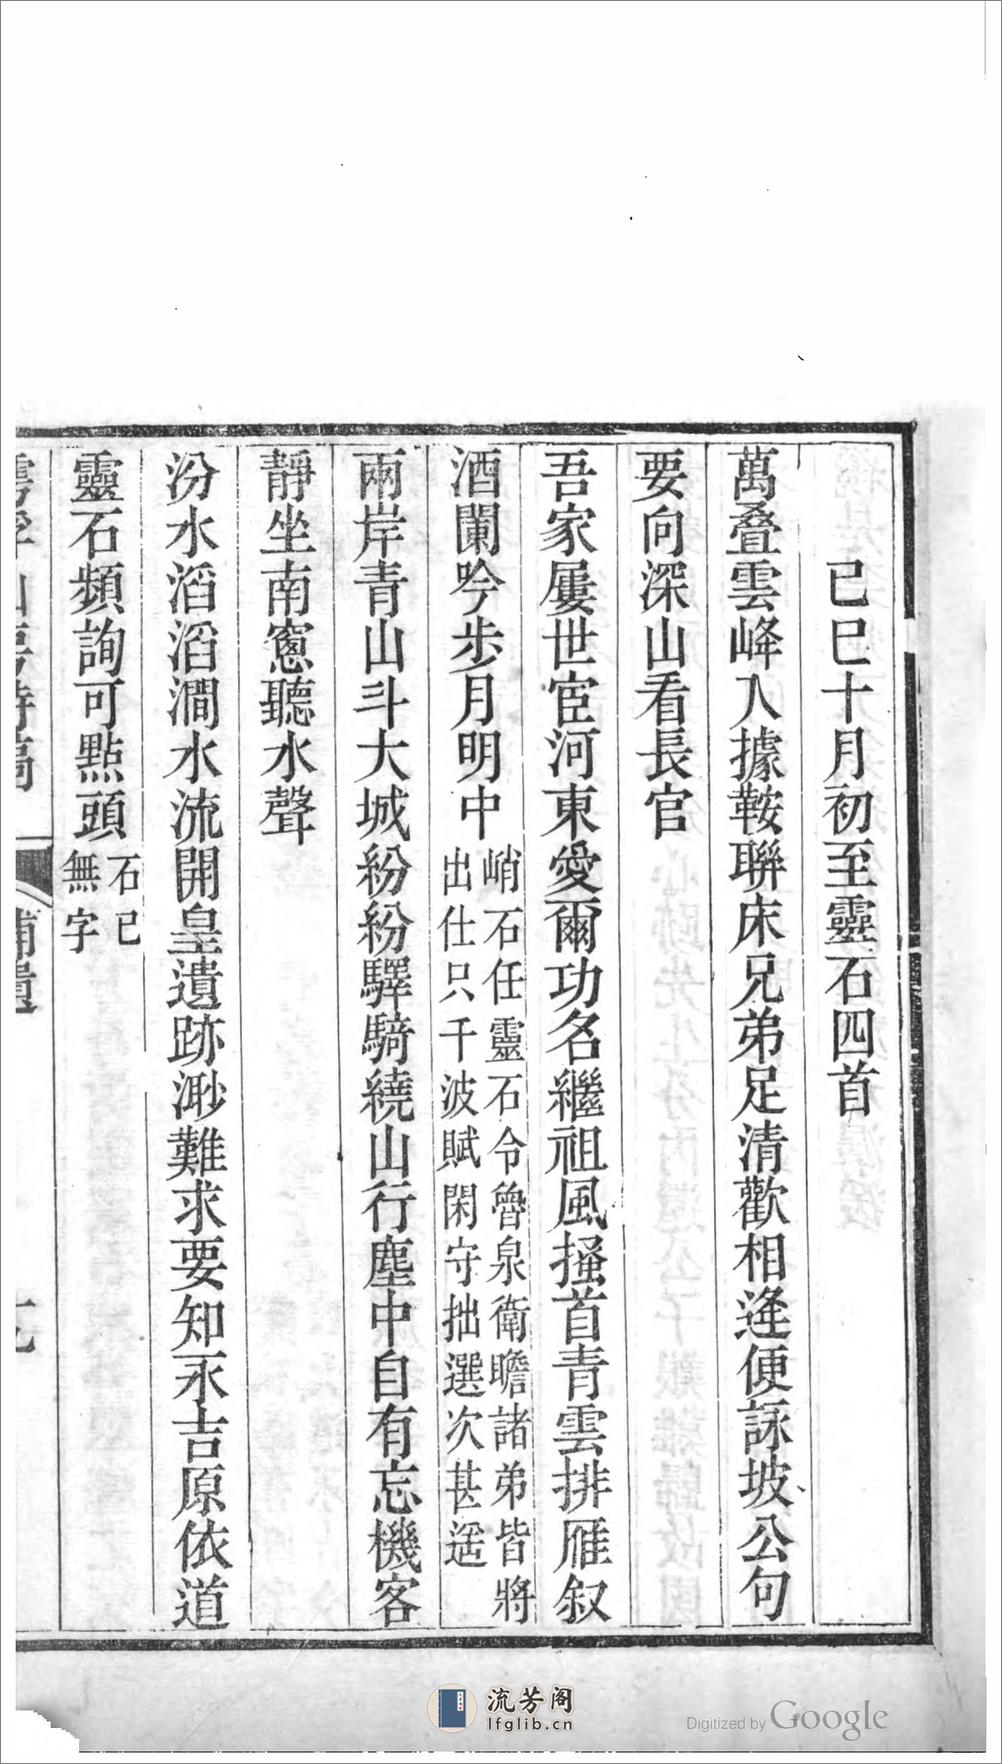 己巳十月初至靈石四首
萬叠雲峰入據鞍聯床兄弟足清歡相逢便詠坡公句
要向深山看長官
吾家屢世宦河東愛爾功名繼祖風搔首青雲排雁叙
酒闌吟步月明中
峭石任靈石令魯泉衛瞻諸弟皆將
出仕只千波賦閑守拙選次甚遥
兩岸青山斗大城紛紛驛騎繞山行塵中自有忘機客
靜坐南窻聽水聲
汾水滔滔澗水流開皇遺跡渺難求要知永吉原依道
靈石頻詢可點頭
石已
無字
補遺
流芳阁
lfglib.cn
Digitized by Google